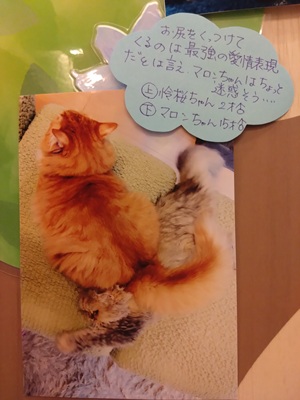 お尻をくっつけて
くるのは最強の愛情表現
だとは言え、マロンちゃんはちょっと
迷惑そう…
上 怜桜ちゃん 2才
下 マロンちゃん 15才